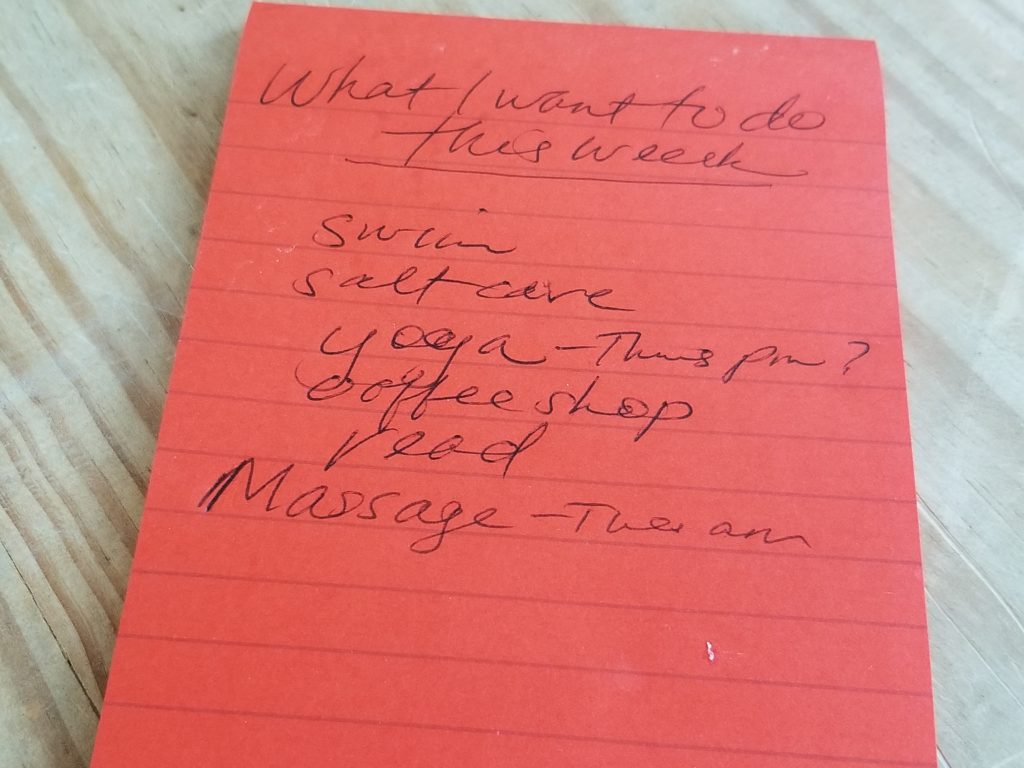 What I want to do
this week
swim
salt cave
yoga - Thurs pm?
coffee shop
read
Massage - Tues am